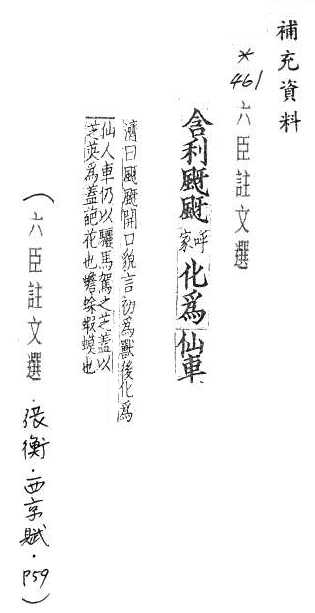 補充資料
*461 六臣註文選
含利颬颬呼家化為仙車
濟曰颬颬開口貌言初為獸後化為
仙人車仍以驪馬駕之芝蓋以
芝英為蓋葩花也蟾蜍蝦蟆也
(六臣註文選.張衡.西京賦.P59)